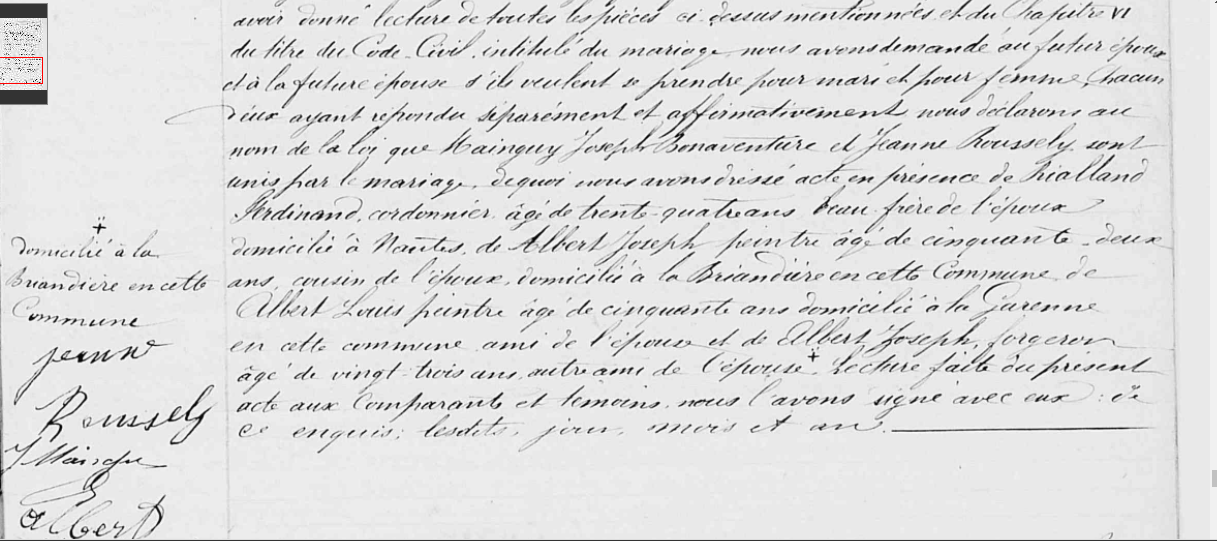 avoir donné lecture de toutes les pièces ci dessus mentionnées et du Chapitre VI
du titre du Code Civil intitulé du mariage nous avons demandé au futur époux
et à la future épouse s'ils veulent se prendre pour mari et pour femme, Chacun
d'eux ayant répondu séparément et affirmativement nous déclarons au
nom de la loi que Mainguy Joseph Bonaventure et Jeanne Roussely sont
unis par le mariage, de quoi nous avons dressé acte en présence de Rialland
Ferdinand, cordonnier âgé de trente-quatre ans beau-frère de l'époux
domicilié à Nantes, de Albert Joseph peintre âgé de cinquante-deux
ans, cousin de l'époux, domicilié à la Briandière en cette Commune, de
Albert Louis peintre âgé de cinquante ans domicilié à la Garenne
en cette commune ami de l'épouse et de Albert Joseph, forgeron
âgé de vingt-trois ans, autre ami de l'épouse ‡. Lecture faite du présent
acte aux Comparants et témoins, nous l'avons signé avec eux : de
ce enquis; lesdits, jour, mois et an.
‡
domicilié à la
Briandière en cette
Commune
jeanne
Roussely
J Mainguy
Albert